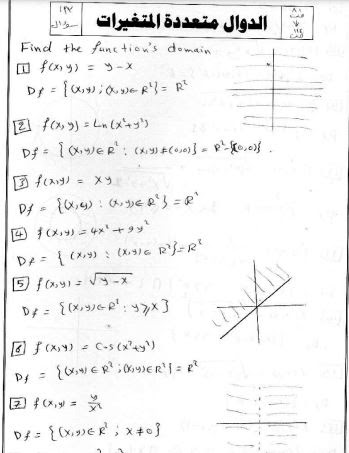 الدوال متعددة المتغيرات
Find the function's domain
1 f(x,y) = y-x
Df = {(x,y) ; (x,y)∈R²} = R²
2 f(x,y) = Ln(x²+y²)
Df = {(x,y)∈R² : (x,y)≠(0,0)} = R²-{(0,0)}.
3 f(x,y) = xy
Df = {(x,y) : (x,y)∈R²} = R²
4 f(x,y) = 4x²+9y²
Df = {(x,y) : (x,y)∈R²} = R²
5 f(x,y) = √y-x
Df = {(x,y)∈R² : y⩾x}
6 f(x,y) = Cos(x²+y²)
Df = {(x,y)∈R² ; (x,y)∈R²} = R²
7 f(x,y) = y/x²
Df = {(x,y)∈R² ; x≠0}